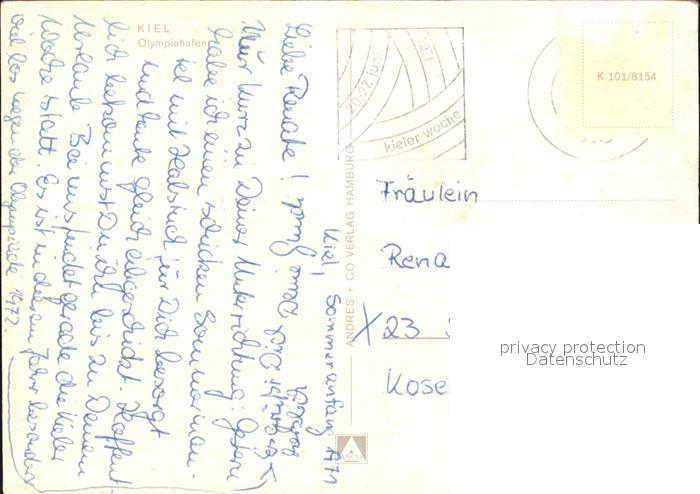 KIEL
Olympiahafen
Kiel, Sommeranfang 1971
Liebe Renate!
Nur kurz zu Deiner Unterrichtung: Gestern
habe ich einen schicken Sommerman-
tel mit Halstuch für Dich besorgt
und heute gleich abgeschickt. Hoffent-
lich bekommst Du ihn bis zu Deinem
Urlaub. Bei uns findet gerade die Kieler
Woche statt. Es ist in diesem Jahr besonders
viel los wegen der Olympiade 1972.
ANDRES + CO VERLAG HAMBURG
20.-27. juni 1971
kieler woche
K 101/8154
Fräulein
Rena
23
Kose
privacy protection
Datenschutz